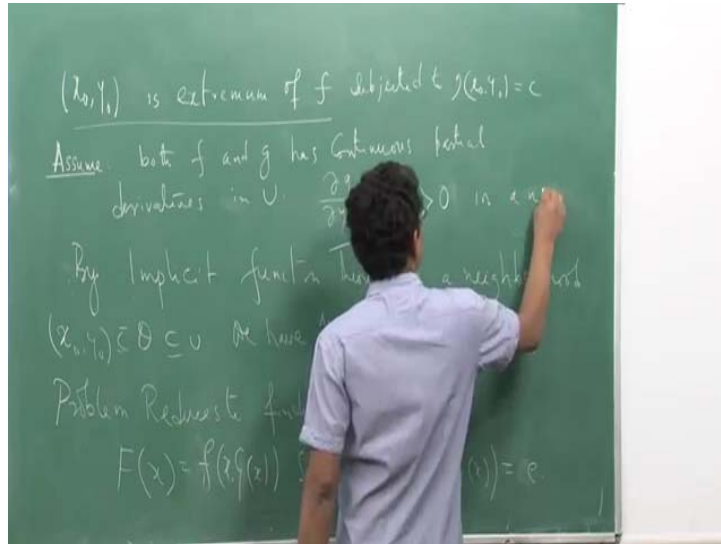 (x₀, y₀) is extremum of f subjected t g(x₀, y₀) = c
Assume both f and g has Continuous partial
derivatives in U. ∂g > 0 in a n
By Implicit function a neighb
(x₀, y₀) ⊆ O ⊆ U we have
Problem Reduces to
F(x) = f(x, G(x)) (x)) = c